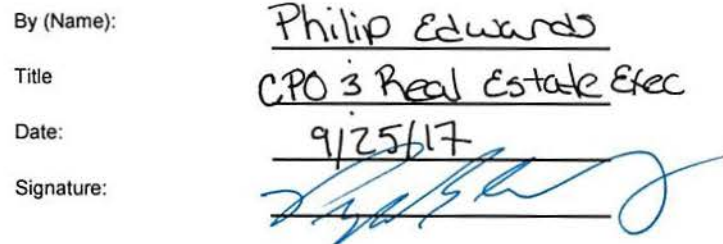 By (Name): Philip Edwards
Title CPO & Real Estate Exec
Date: 9/25/17
Signature: